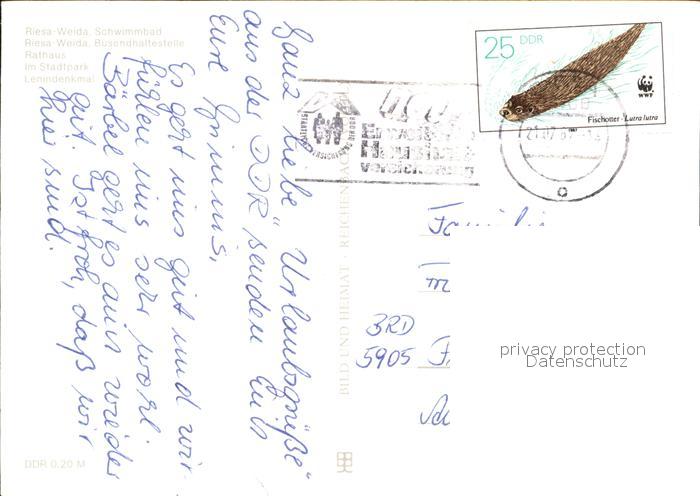 Riesa-Weida, Schwimmbad
Riesa-Weida, Busendhaltestelle
Rathaus
Im Stadtpark
Lenindenkmal
Ganz liebe Urlaubsgrüße
aus der "DDR" senden Euch
Eure
Es geht uns gut und wir
fühlen uns sehr wohl.
Bärbel geht es auch wieder
gut. Ist froh, daß wir
hier sind.
DDR 0,20 M
BILD UND HEIMAT · REICHENBACH
25 DDR
WWF
Fischotter · Lutra lutra
Haushalt-
versicherung
Familie
BRD
5905 F
privacy protection
Datenschutz